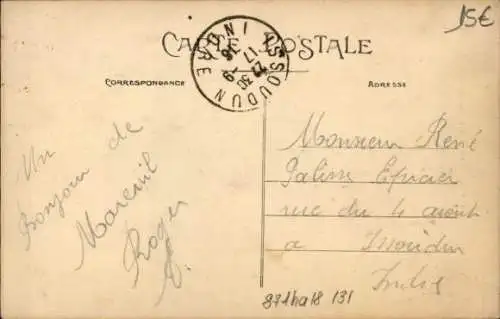 15€
CARTE POSTALE
ISSOUDUN INDRE
17 30
CORRESPONDANCE
ADRESSE
Un
Bonjour de
Mareuil
Roger
Monsieur René
Epicier
rue du 4 août
a Issoudun
Indre
871ha18 131